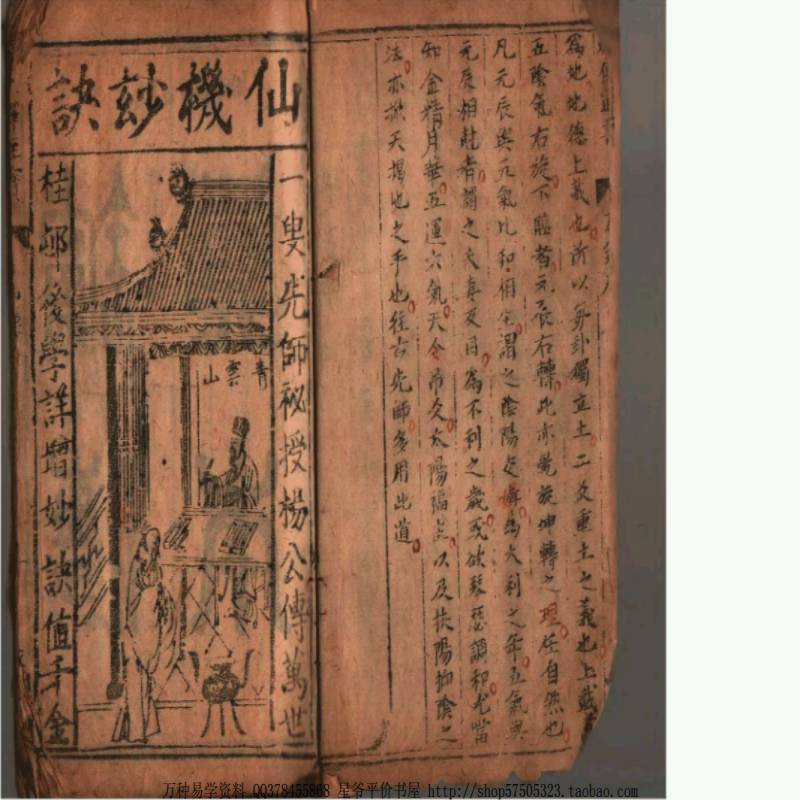 爲地地德上載也所以每卦獨立土二爻重土之義也上載
五陰氣右旋下臨者元辰右轉此亦乾旋坤轉之理任自然也
凡元辰與元氣比和相宅謂之陰陽定婚爲大利之年五氣與
元辰相尅者謂之夫妻反目爲不利之歲或欲琴瑟調和尤當
知金精月華五運六氣天令吊爻太陽臨照以及扶陽抑陰之
法亦以天揭地之手也往古先師多用此道
仙機妙訣
一叟先師祕授楊公傳萬世
青雲山
桂邨後學詳增妙訣值千金
万种易学资料 QQ378455868 星爷平价书屋 http://shop57505323.taobao.com